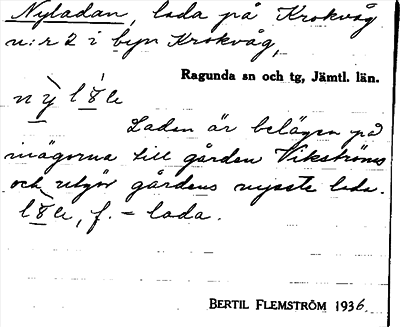 Nyladan, lada på Krokvåg
n:r 2 i byn Krokvåg,
Ragunda sn och tg, Jämtl. län.
Laden är belägen på
inägorna till gården Vikströms
och utgör gårdens nyaste lada.
f. = lada.
BERTIL FLEMSTRÖM 1936.